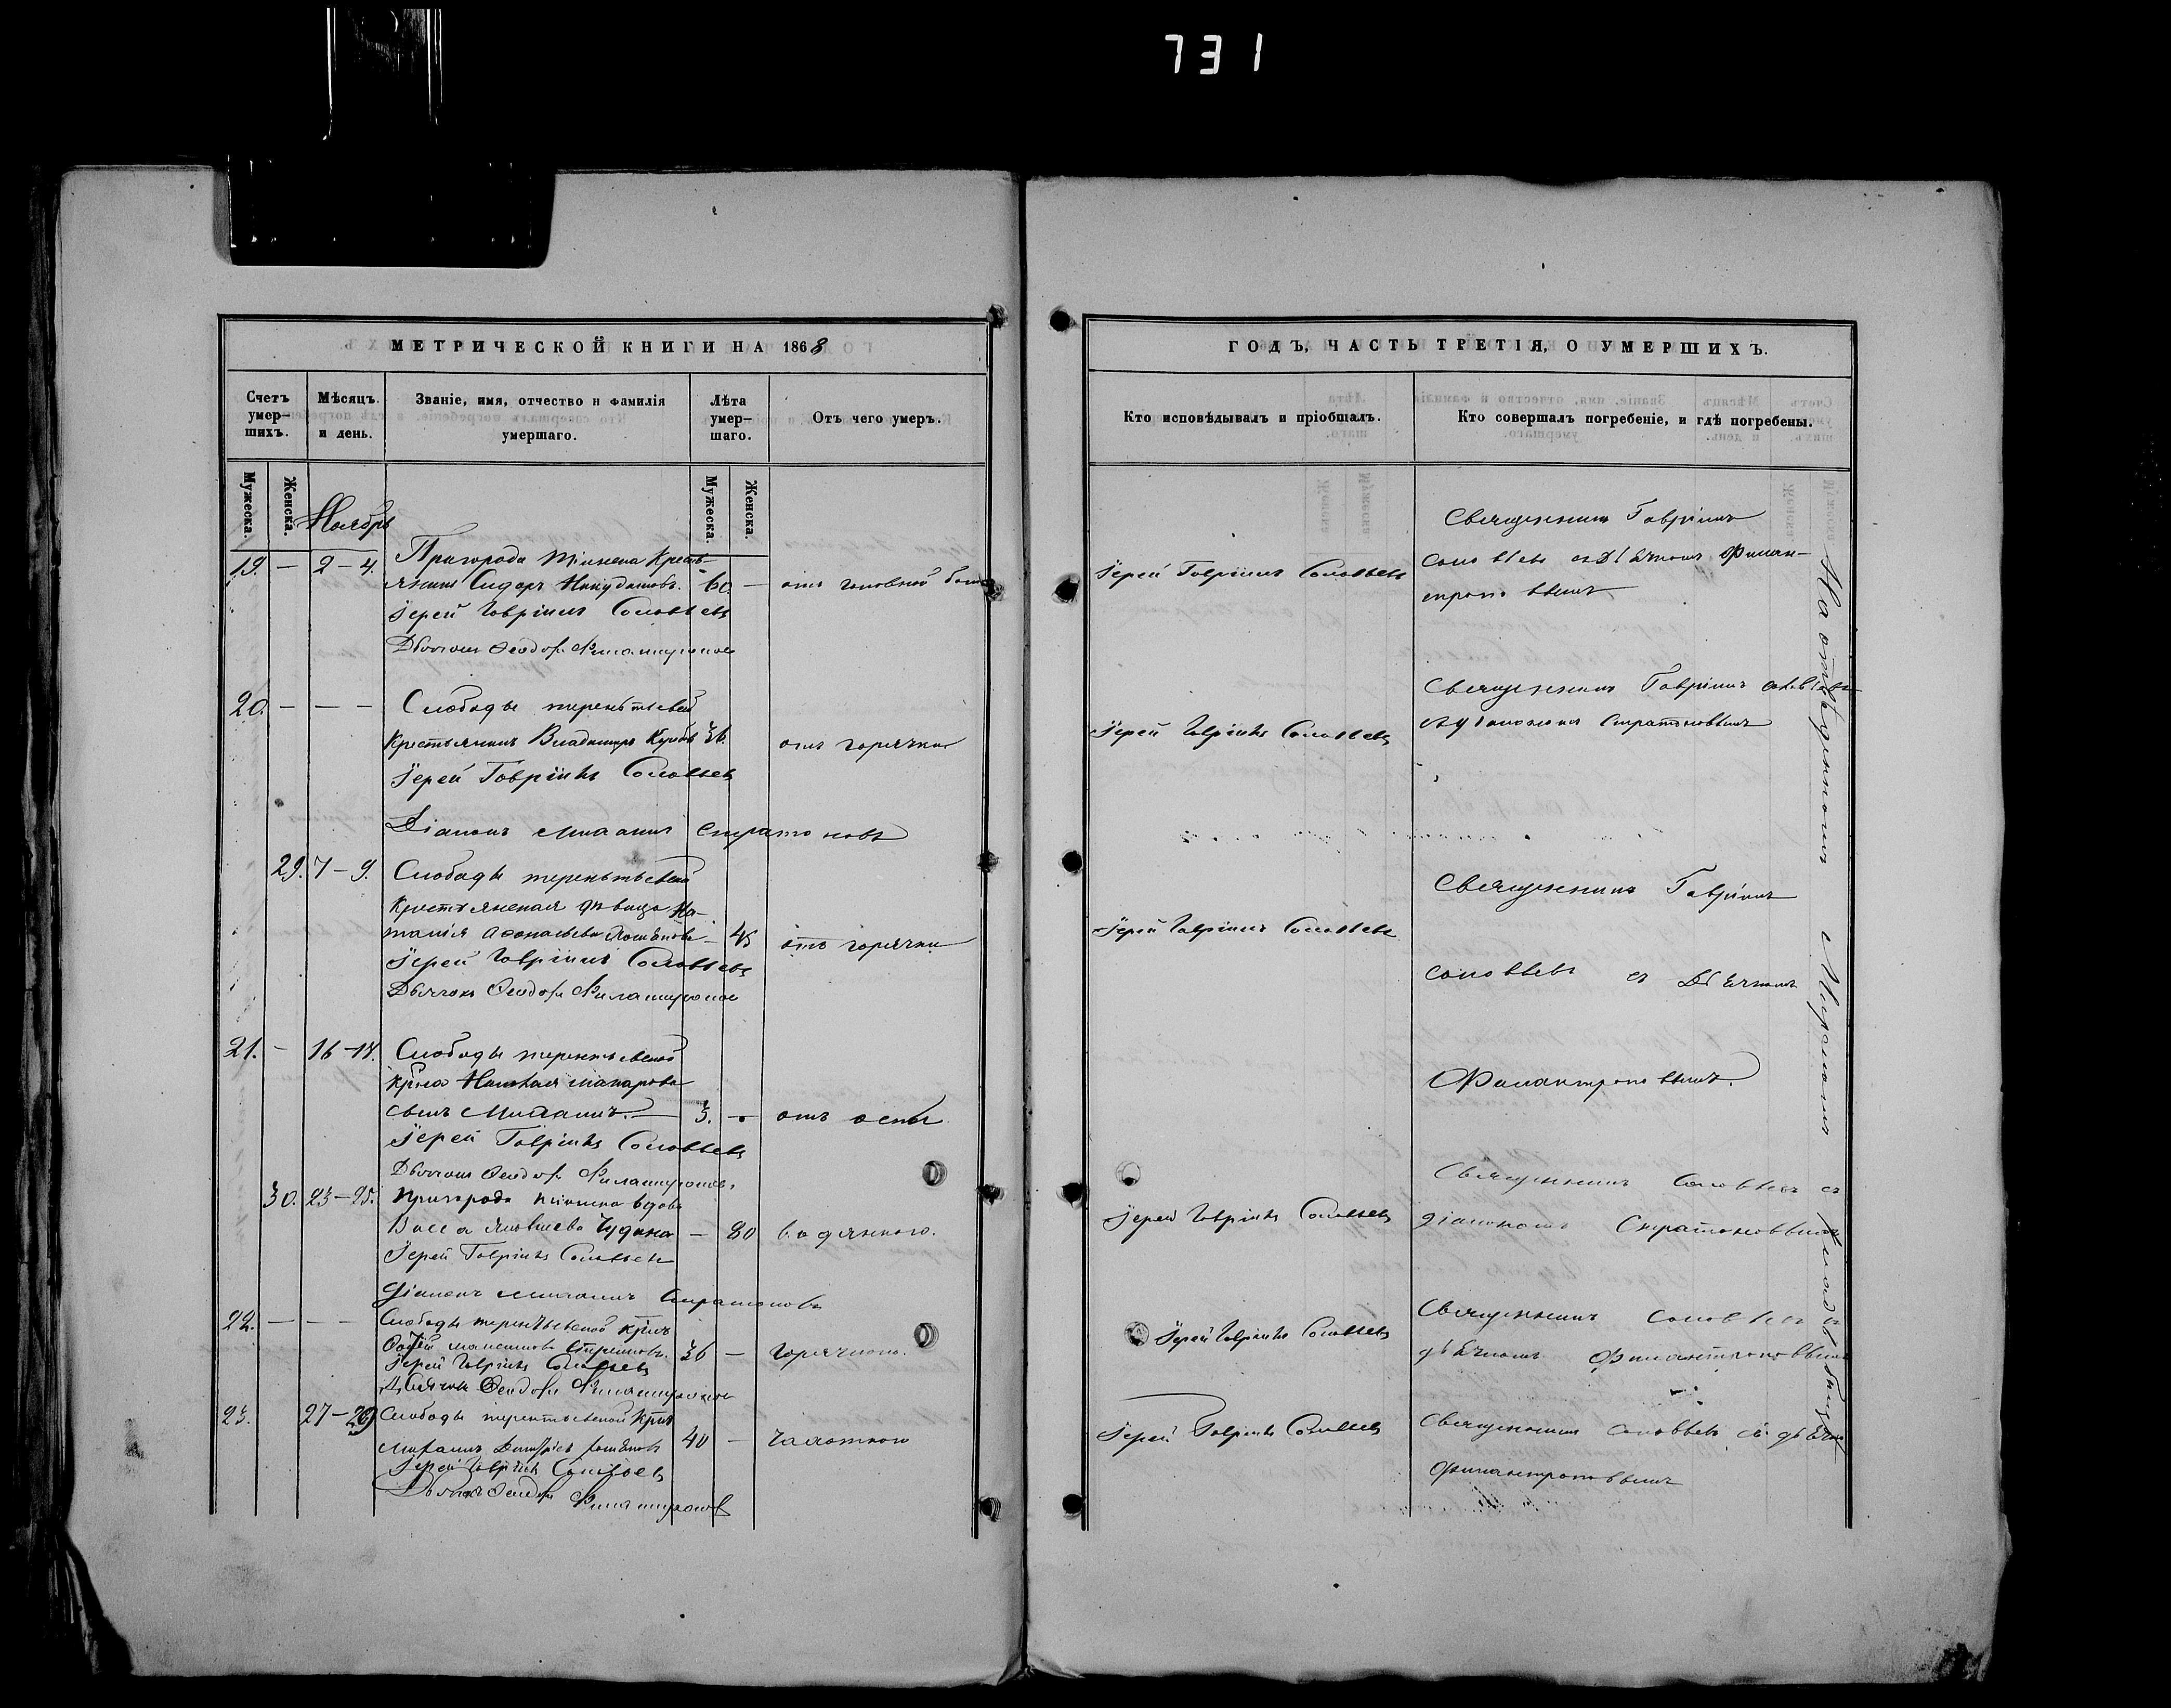 731
МЕТРИЧЕСКОЙ КНИГИ НА 1868
Счетъ умер-шихъ.
Мѣсяцъ и день.
Званіе, имя, отчество и фамилія умершаго.
Лѣта умер-шаго.
Отъ чего умеръ.
Мужеска.
Женска.
Мужеска.
Женска.
Ноябрь
19. — 2 – 4. Пригорода Тіинска Кресть-
янинъ Сидоръ 60. — отъ головной
Іерей Гавріилъ Соловьевъ
Дьячокъ Ѳеодоръ Филантроповъ
20. — — — Слободы терентьевой
Крестьянинъ Владимиръ 36. отъ горячки
Іерей Гавріилъ Соловьевъ
Діаконъ Михаилъ Стратоновъ
29. 7 – 9. Слободы терентьевой
Крестьянская дѣвица На-
талія Аѳонасьева — 45 отъ горячки
Іерей Гавріилъ Соловьевъ
Дьячокъ Ѳеодоръ Филантроповъ
21. — 16 – 17. Слободы терентьевой
Николая макарова
сынъ Михаилъ. — 3. — отъ оспы
Іерей Гавріилъ Соловьевъ
Дьячокъ Ѳеодоръ Филантроповъ.
30. 23 – 25. Пригорода тіинска вдова
Васса Яковлева — 80 водяного.
Іерей Гавріилъ Соловьевъ
Діаконъ Михаилъ Стратоновъ
22. — — — Слободы терентьевой
максимовъ 36 — горячкою.
Іерей Гавріилъ Соловьевъ
Дьячокъ Ѳеодоръ Филантроповъ
23. 27 – 29 Слободы терентьевой
Михаилъ 40 — чахоткою
Іерей Гавріилъ Соловьевъ
Дьячокъ Ѳеодоръ Филантроповъ
ГОДЪ, ЧАСТЬ ТРЕТІЯ, О УМЕРШИХЪ.
Кто исповѣдывалъ и пріобщалъ.
Кто совершалъ погребеніе, и гдѣ погребены.
Іерей Гавріилъ Соловьевъ
Священникъ Гавріилъ
Соловьевъ съ Дьячкомъ Филан-
троповымъ
Іерей Гавріилъ Соловьевъ
Священникъ Гавріилъ Соловьевъ
съ діакономъ Стратоновымъ
Іерей Гавріилъ Соловьевъ
Священникъ Гавріилъ
Соловьевъ съ Дьячкомъ
Филантроповымъ.
Іерей Гавріилъ Соловьевъ
Священникъ Соловьевъ съ
діакономъ Стратоновымъ
Іерей Гавріилъ Соловьевъ
Священникъ Соловьевъ
дьячкомъ Филантроповымъ
Іерей Гавріилъ Соловьевъ
Священникъ Соловьевъ съ дьячкомъ
Филантроповымъ
На отведенномъ Мірскомъ кладбищѣ